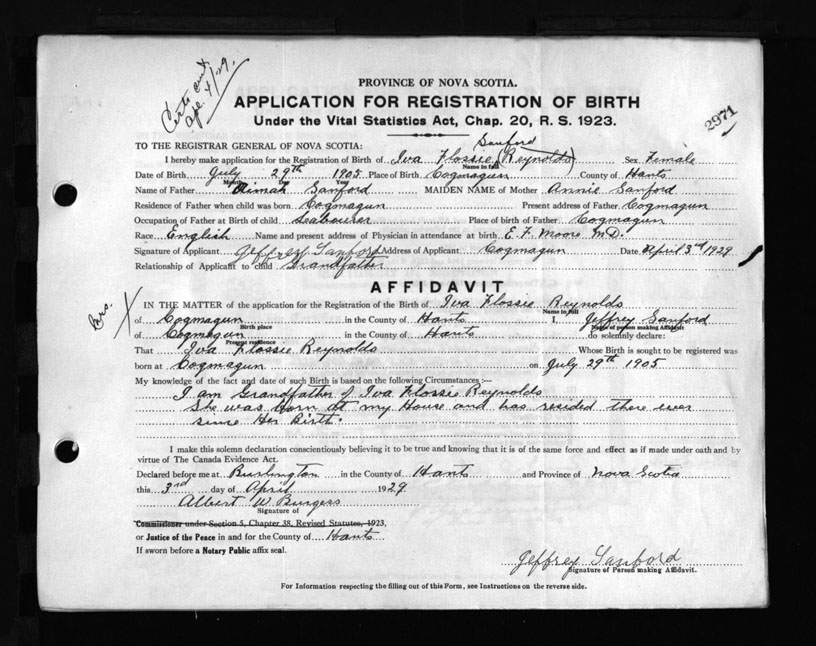 Certe sent
Apl. 4/29.
2971
PROVINCE OF NOVA SCOTIA.
APPLICATION FOR REGISTRATION OF BIRTH
Under the Vital Statistics Act, Chap. 20, R. S. 1923.
TO THE REGISTRAR GENERAL OF NOVA SCOTIA:
Sanford
I hereby make application for the Registration of Birth of Iva Flossie (Reynolds) Sex Female
Name in full
Date of Birth July 29th 1905 Place of Birth Cogmagun County of Hants
Month Day Year
Name of Father Sanford MAIDEN NAME of Mother Annie Sanford
Residence of Father when child was born Cogmagun Present address of Father Cogmagun
Occupation of Father at Birth of child Place of birth of Father Cogmagun
Race English Name and present address of Physician in attendance at birth E. F. Moore M.D.
Signature of Applicant Jeffrey Sanford Address of Applicant Cogmagun Date April 3rd 1929
Relationship of Applicant to child Grandfather
AFFIDAVIT
IN THE MATTER of the application for the Registration of the Birth of Iva Flossie Reynolds
Name in full
of Cogmagun in the County of Hants I, Jeffrey Sanford
Birth place Name of person making Affidavit
of Cogmagun in the County of Hants do solemnly declare:
Present residence
That Iva Flossie Reynolds Whose Birth is sought to be registered was
born at Cogmagun on July 29th 1905
My knowledge of the fact and date of such Birth is based on the following Circumstances:—
I am Grandfather of Iva Flossie Reynolds
She was born at my House and has resided there ever
since Her Birth.
I make this solemn declaration conscientiously believing it to be true and knowing that it is of the same force and effect as if made under oath and by
virtue of The Canada Evidence Act.
Declared before me at Burlington in the County of Hants and Province of Nova Scotia
this 3rd day of April 1929
Albert W. Burgess
Signature of
Commissioner under Section 5, Chapter 38, Revised Statutes, 1923,
or Justice of the Peace in and for the County of Hants
If sworn before a Notary Public affix seal.
Jeffrey Sanford
Signature of Person making Affidavit.
For Information respecting the filling out of this Form, see Instructions on the reverse side.